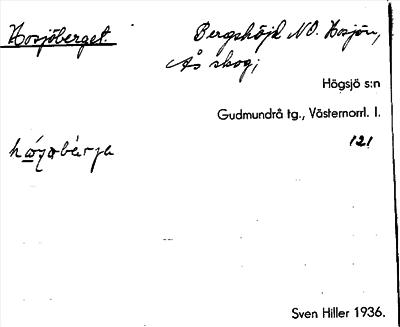 Hosjöberget. Bergshöjd NO. Hosjön,
Ås skog;
Högsjö s:n
Gudmundrå tg., Västernorrl. l.
121
Sven Hiller 1936.